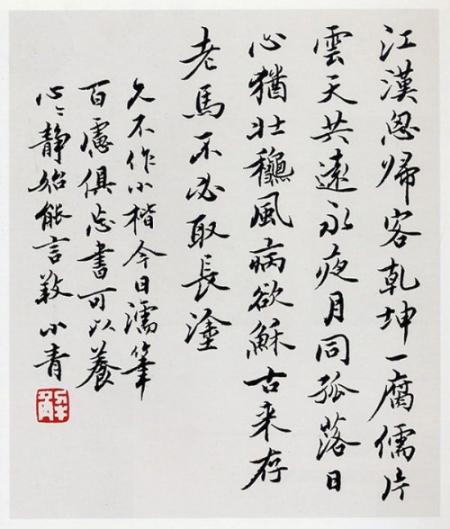 江漢思歸客乾坤一腐儒片
雲天共遠永夜月同孤落日
心猶壯龝風病欲穌古来存
老馬不必取長塗
久不作小楷今日濡筆
百慮俱忘書可以養
心〻静始能言 小青